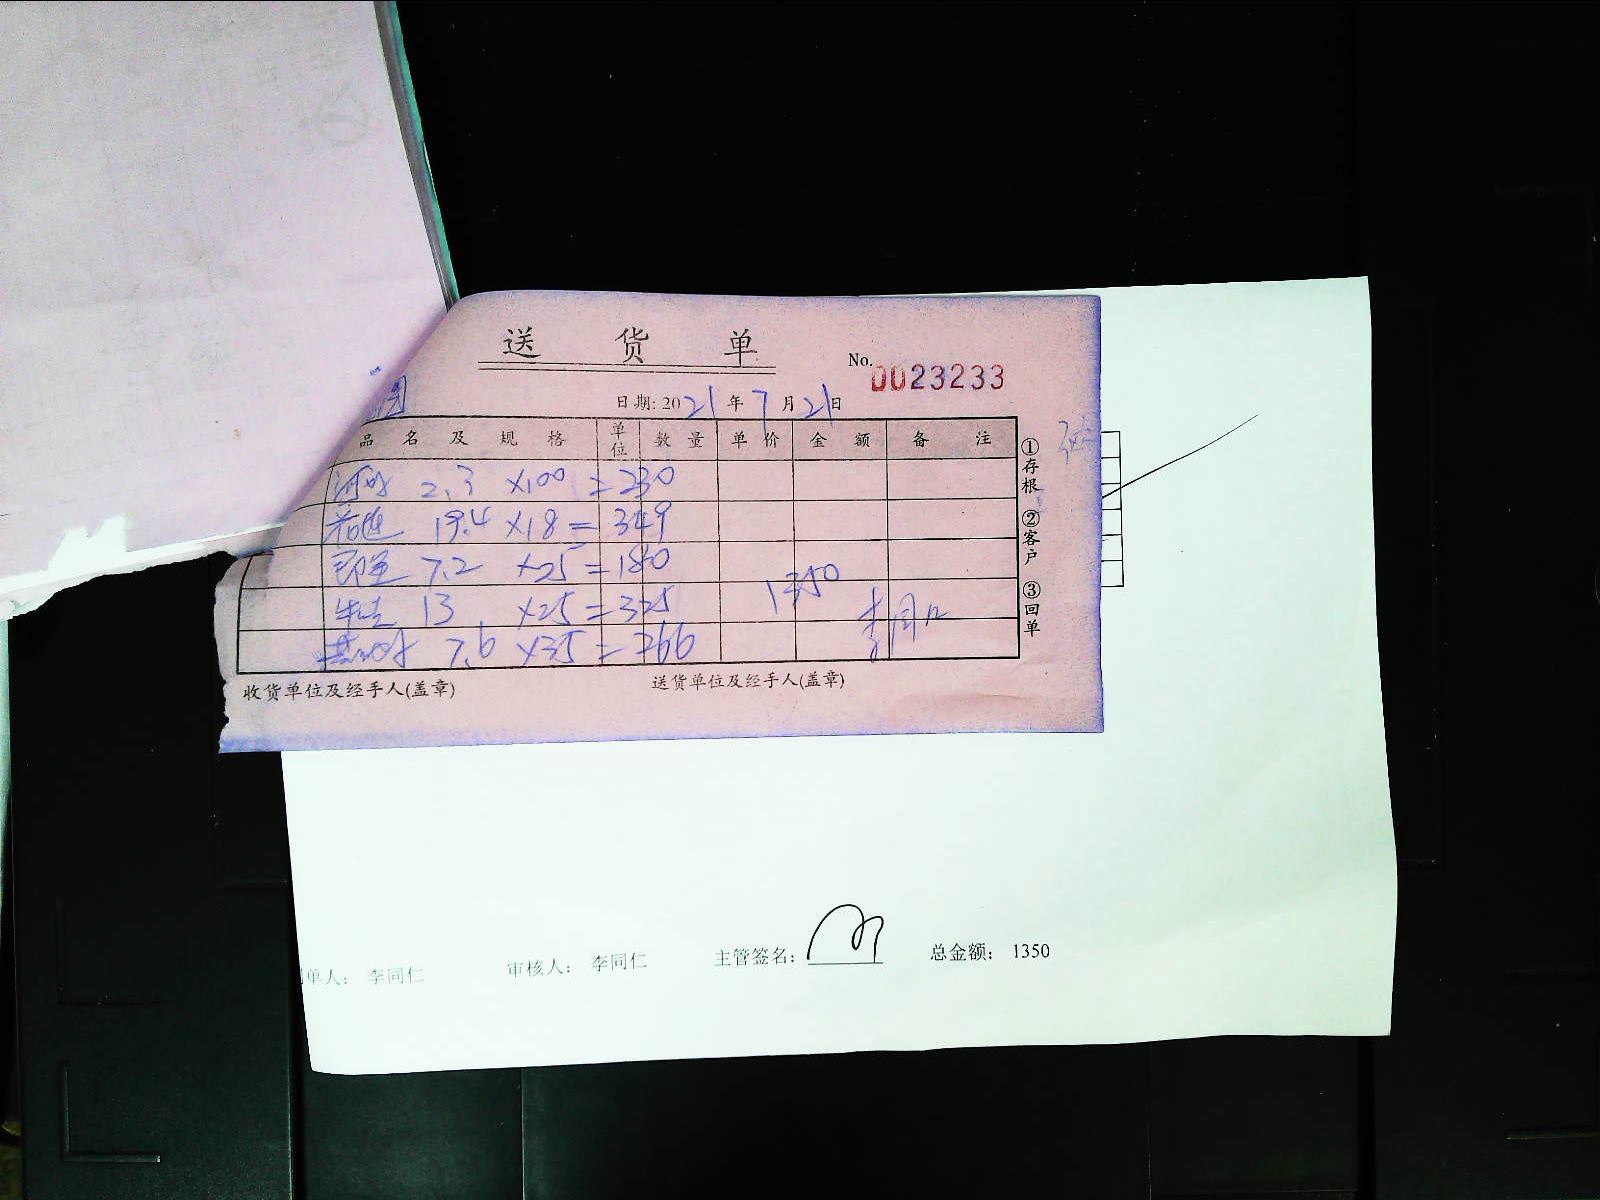 送 货 单
No. 0023233
日期: 2021 年 7 月 21 日
品 名 及 规 格 单位 数 量 单 价 金 额 备 注
2.3 ×100 = 230
19.4 ×18 = 349
7.2 ×25 = 180
13 ×25 = 325
7.6 ×35 = 266
1350
①存根 ②客户 ③回单
收货单位及经手人(盖章) 送货单位及经手人(盖章)
单人: 李同仁 审核人: 李同仁 主管签名: 总金额: 1350